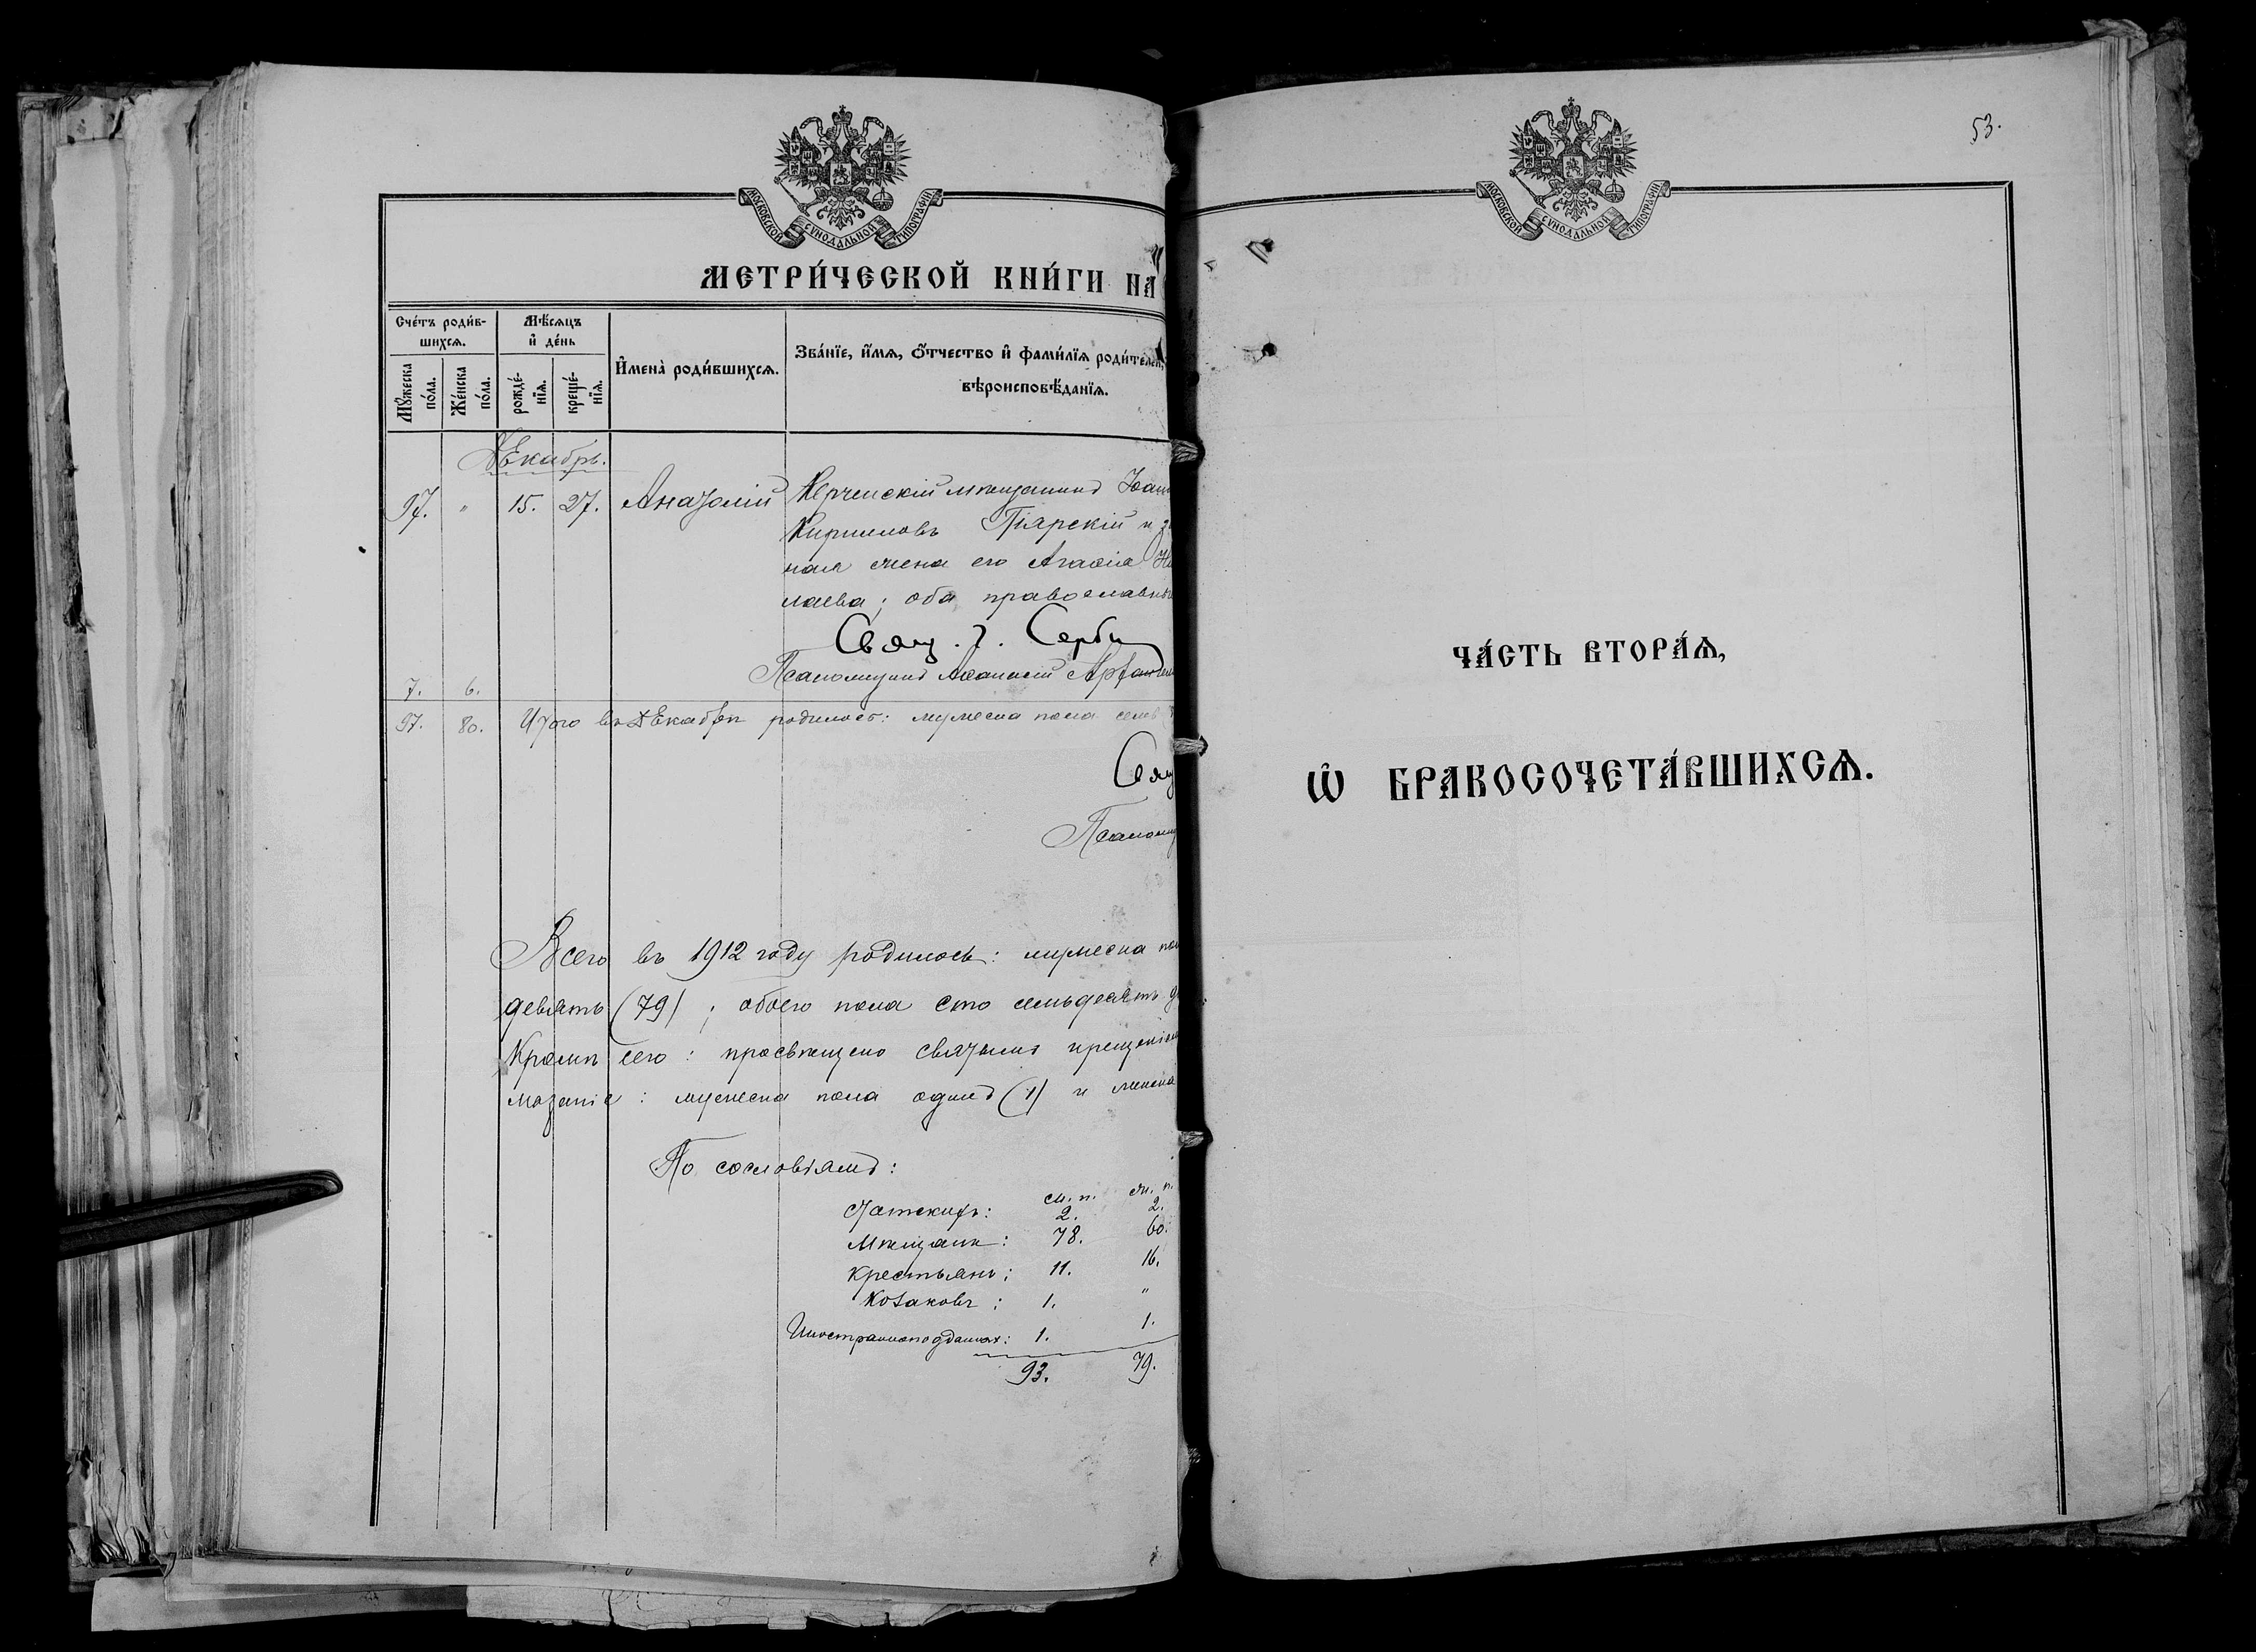 МОСКОВСКОЙ СѴНОДАЛЬНОЙ ТИПОГРАФІИ
МЕТРИ́ЧЕСКОЙ КНИ́ГИ НА
Сче́тъ роди́в-
шихсѧ.
Мꙋ́жеска
по́ла.
Же́нска
по́ла.
Мѣ́сѧцъ
и҆ де́нь
рожде́-
нїѧ.
креще́-
нїѧ.
И҆мена̀ роди́вшихсѧ.
Зва́нїе, и҆́мѧ, ѻ҆́тчество и҆ фами́лїѧ роди́телей,
вѣроисповѣ́данїѧ.
Декабрь.
97. " 15. 27. Анатолій Керченскій мѣщанинъ Іоан
Кирилловъ Піярскій и з
ная жена его Агаѳія Ни
лаева; оба православны
Свящ. І. Серби
Псаломщикъ Аѳанасій
7. 6.
97. 80. Итого въ Декабрѣ родилось: мужеска пола семь
Свящ
Псаломщ
Всего въ 1912 году родилось: мужеска пол
девять (79); обоего пола сто семьдесятъ д
Кромѣ сего: просвѣщено святымъ крещеніем
мазаніе: мужеска пола одинъ (1) и женска
По сословіямъ:
м. п. ж. п.
Датскихъ: 2. 2.
Мѣщанъ: 78. 60.
Крестьянъ: 11. 16.
Козаковъ: 1. "
Иностранноподданных: 1. 1.
93. 79.
53.
МОСКОВСКОЙ СѴНОДАЛЬНОЙ ТИПОГРАФІИ
ЧА́СТЬ ВТОРА́Ѧ,
Ѡ҆ БРАКОСОЧЕТА́ВШИХСѦ.